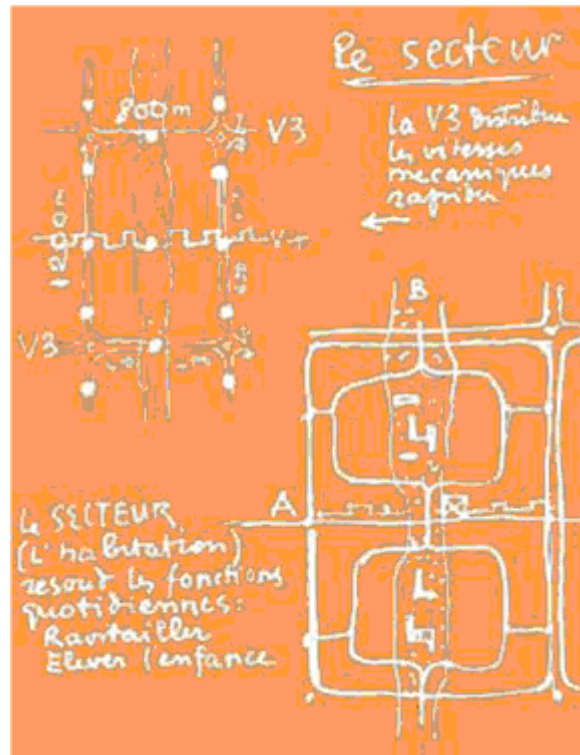 le secteur
800m
V3
la V3 distribue
les vitesses
mécaniques
rapides
1200m
V4
V3
B
A
le SECTEUR,
(l'habitation)
resout les fonctions
quotidiennes:
Ravitailler
Elever l'enfance